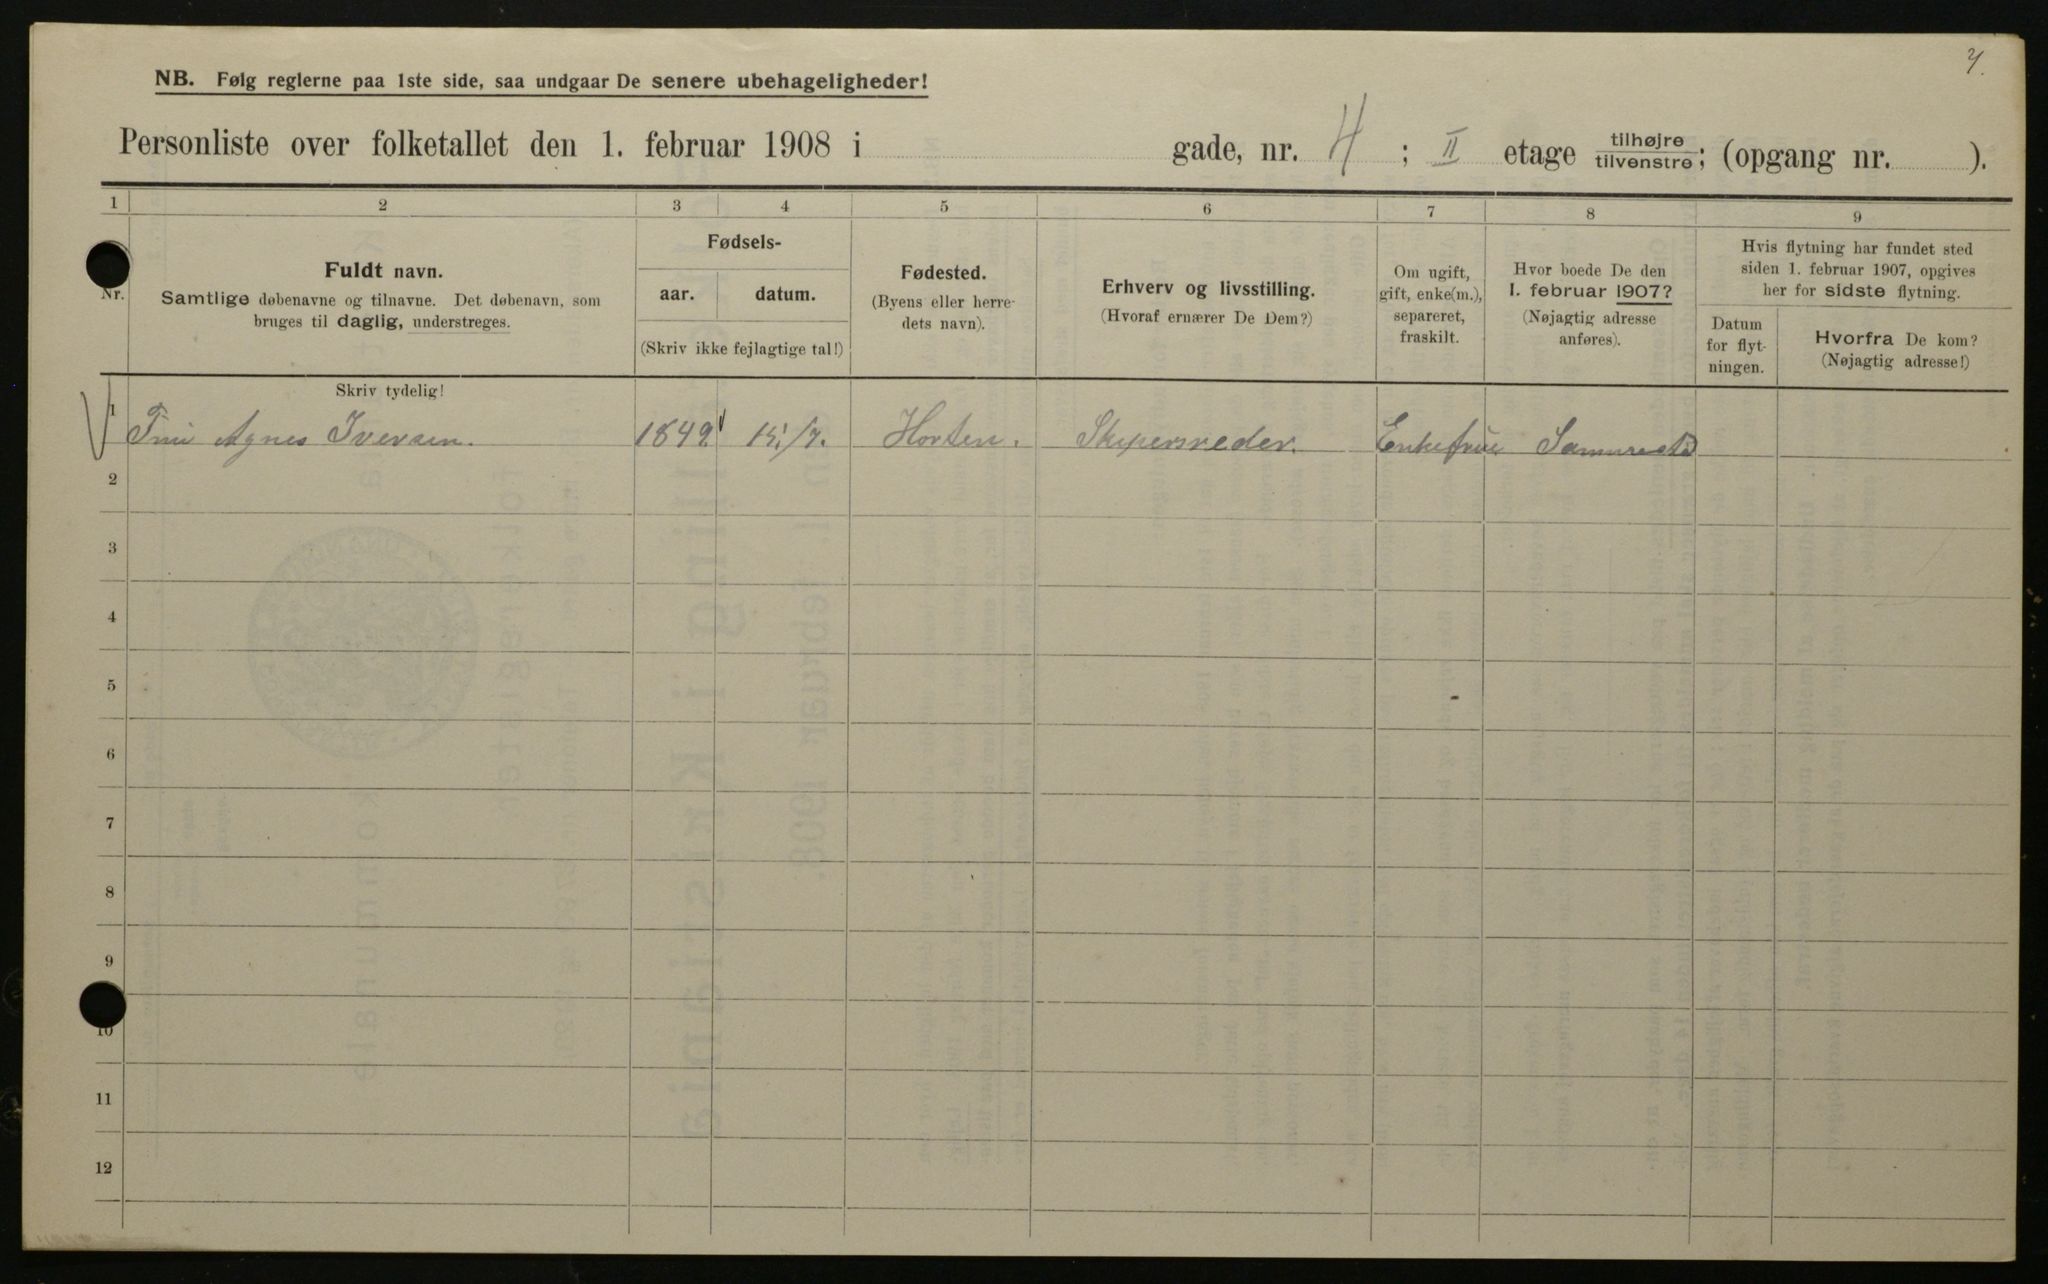 4.
NB. Følg reglerne paa 1ste side, saa undgaar De senere ubehageligheder!
Personliste over folketallet den 1. februar 1908 i gade, nr. 4 ; II etage tilhøjre tilvenstre; (opgang nr. ).
1 2 3 4 5 6 7 8 9
Nr.
Fuldt navn.
Samtlige døbenavne og tilnavne. Det døbenavn, som
bruges til daglig, understreges.
Fødsels-
aar. datum.
(Skriv ikke fejlagtige tal!)
Fødested.
(Byens eller herre-
dets navn).
Erhverv og livsstilling.
(Hvoraf ernærer De Dem?)
Om ugift,
gift, enke(m.),
separeret,
fraskilt.
Hvor boede De den
1. februar 1907?
(Nøjagtig adresse
anføres).
Hvis flytning har fundet sted
siden 1. februar 1907, opgives
her for sidste flytning.
Datum
for flyt-
ningen.
Hvorfra De kom?
(Nøjagtig adresse!)
Skriv tydelig!
1 Fru Agnes Iversen. 1849 15/7. Horten. Skipsreder. Enkefrue Sammested
2
3
4
5
6
7
8
9
10
11
12